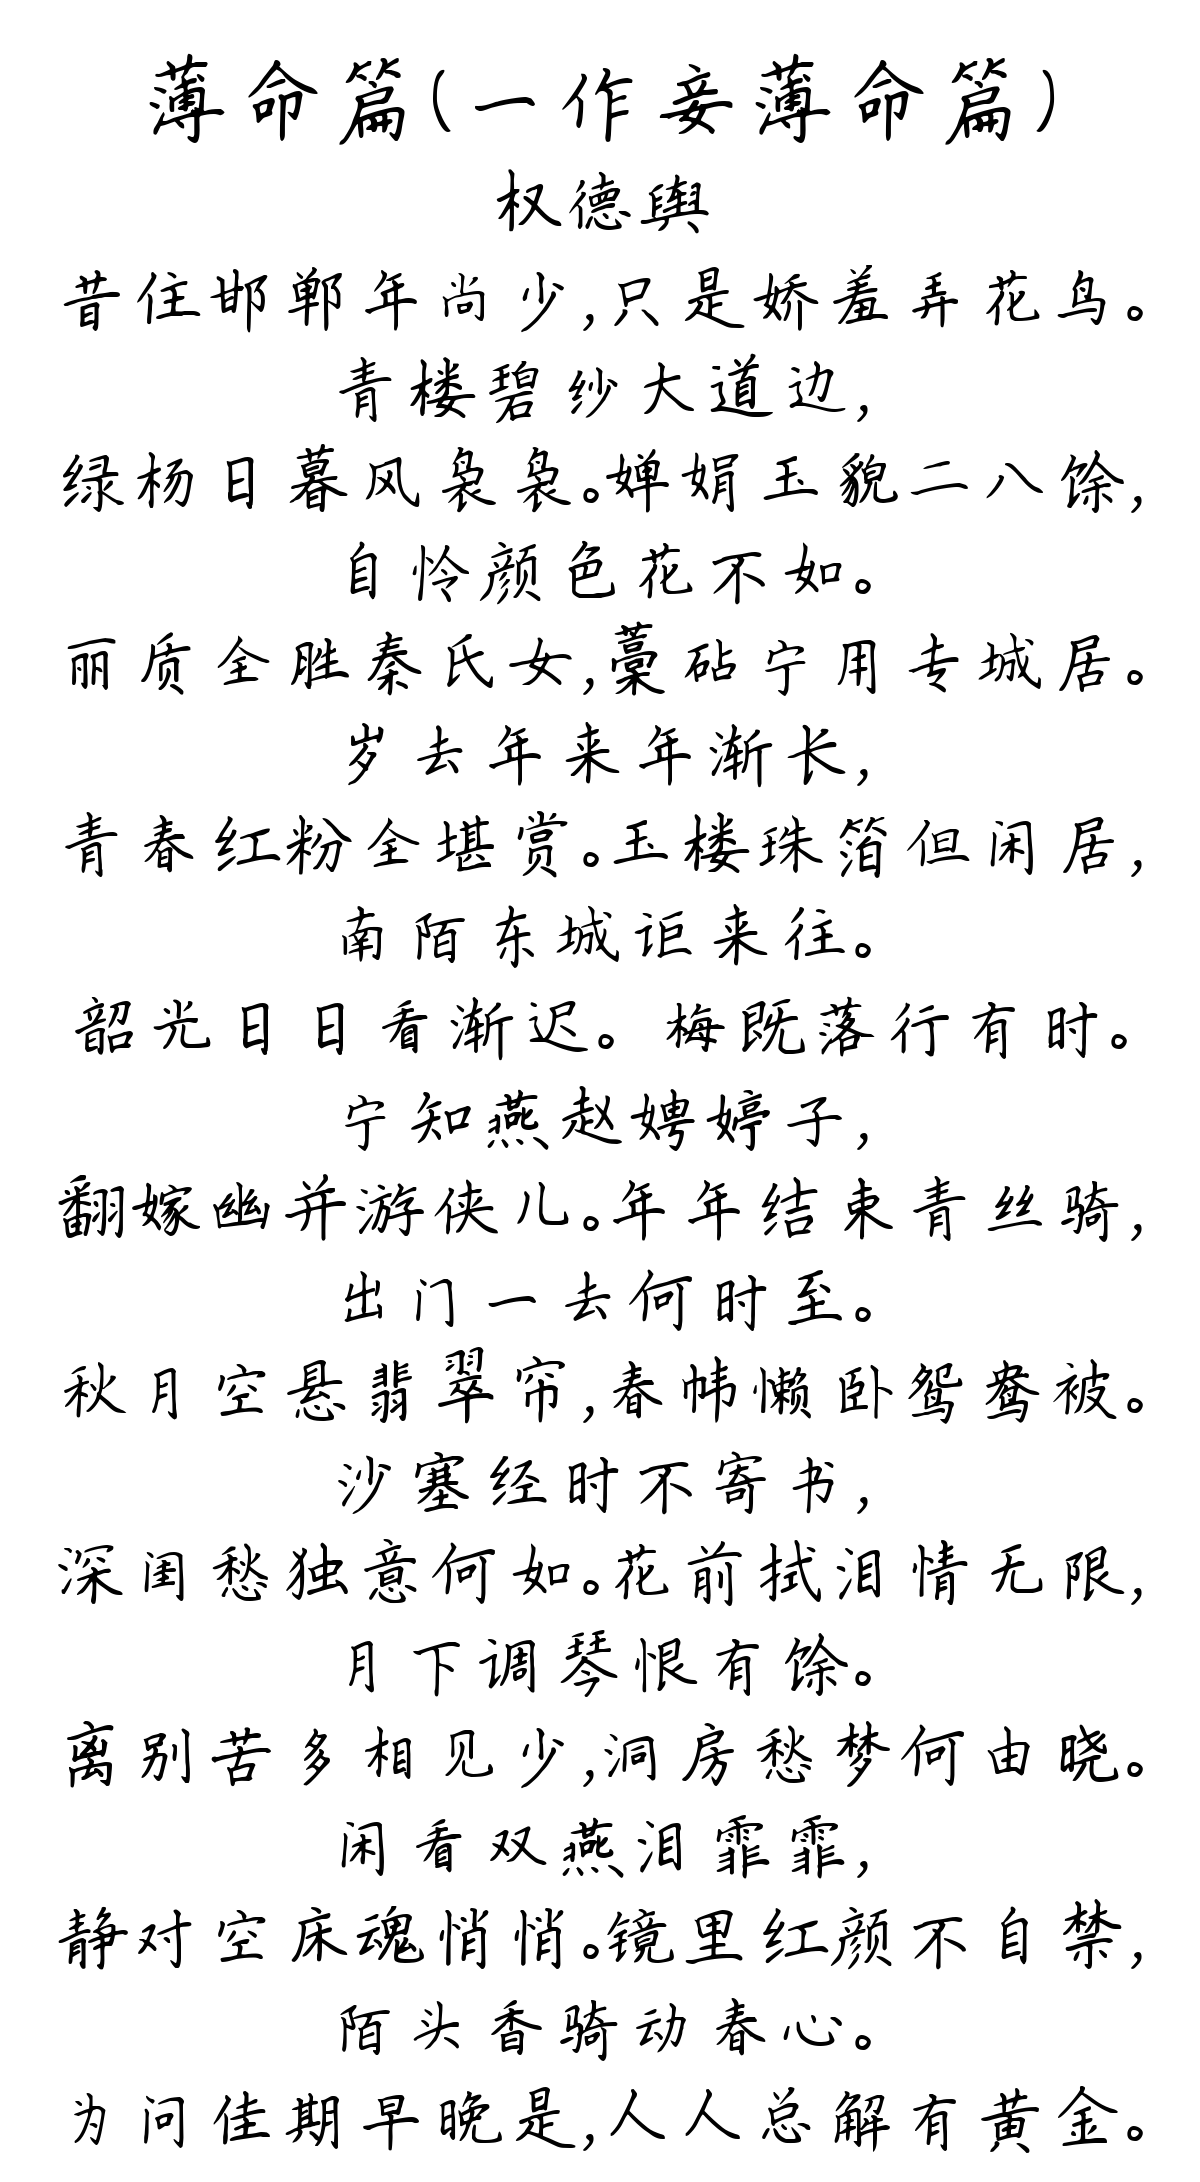 薄命篇(一作妾薄命篇)
权德舆
昔住邯郸年尚少,只是娇羞弄花鸟。
青楼碧纱大道边,
绿杨日暮风袅袅。婵娟玉貌二八馀,
自怜颜色花不如。
丽质全胜秦氏女,藁砧宁用专城居。
岁去年来年渐长,
青春红粉全堪赏。玉楼珠箔但闲居,
南陌东城讵来往。
韶光日日看渐迟。 梅既落行有时。
宁知燕赵娉婷子,
翻嫁幽并游侠儿。年年结束青丝骑,
出门一去何时至。
秋月空悬翡翠帘,春帏懒卧鸳鸯被。
沙塞经时不寄书,
深闺愁独意何如。花前拭泪情无限,
月下调琴恨有馀。
离别苦多相见少,洞房愁梦何由晓。
闲看双燕泪霏霏,
静对空床魂悄悄。镜里红颜不自禁,
陌头香骑动春心。
为问佳期早晚是,人人总解有黄金。